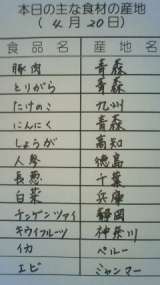 本日の主な食材の産地
(4月20日)
食品名 産地名
豚肉 青森
とりがら 青森
たけのこ 九州
にんにく 青森
しょうが 高知
人参 徳島
長葱 千葉
白菜 兵庫
チンゲンツァイ 静岡
キウイフルーツ 神奈川
イカ ペルー
エビ ミャンマー